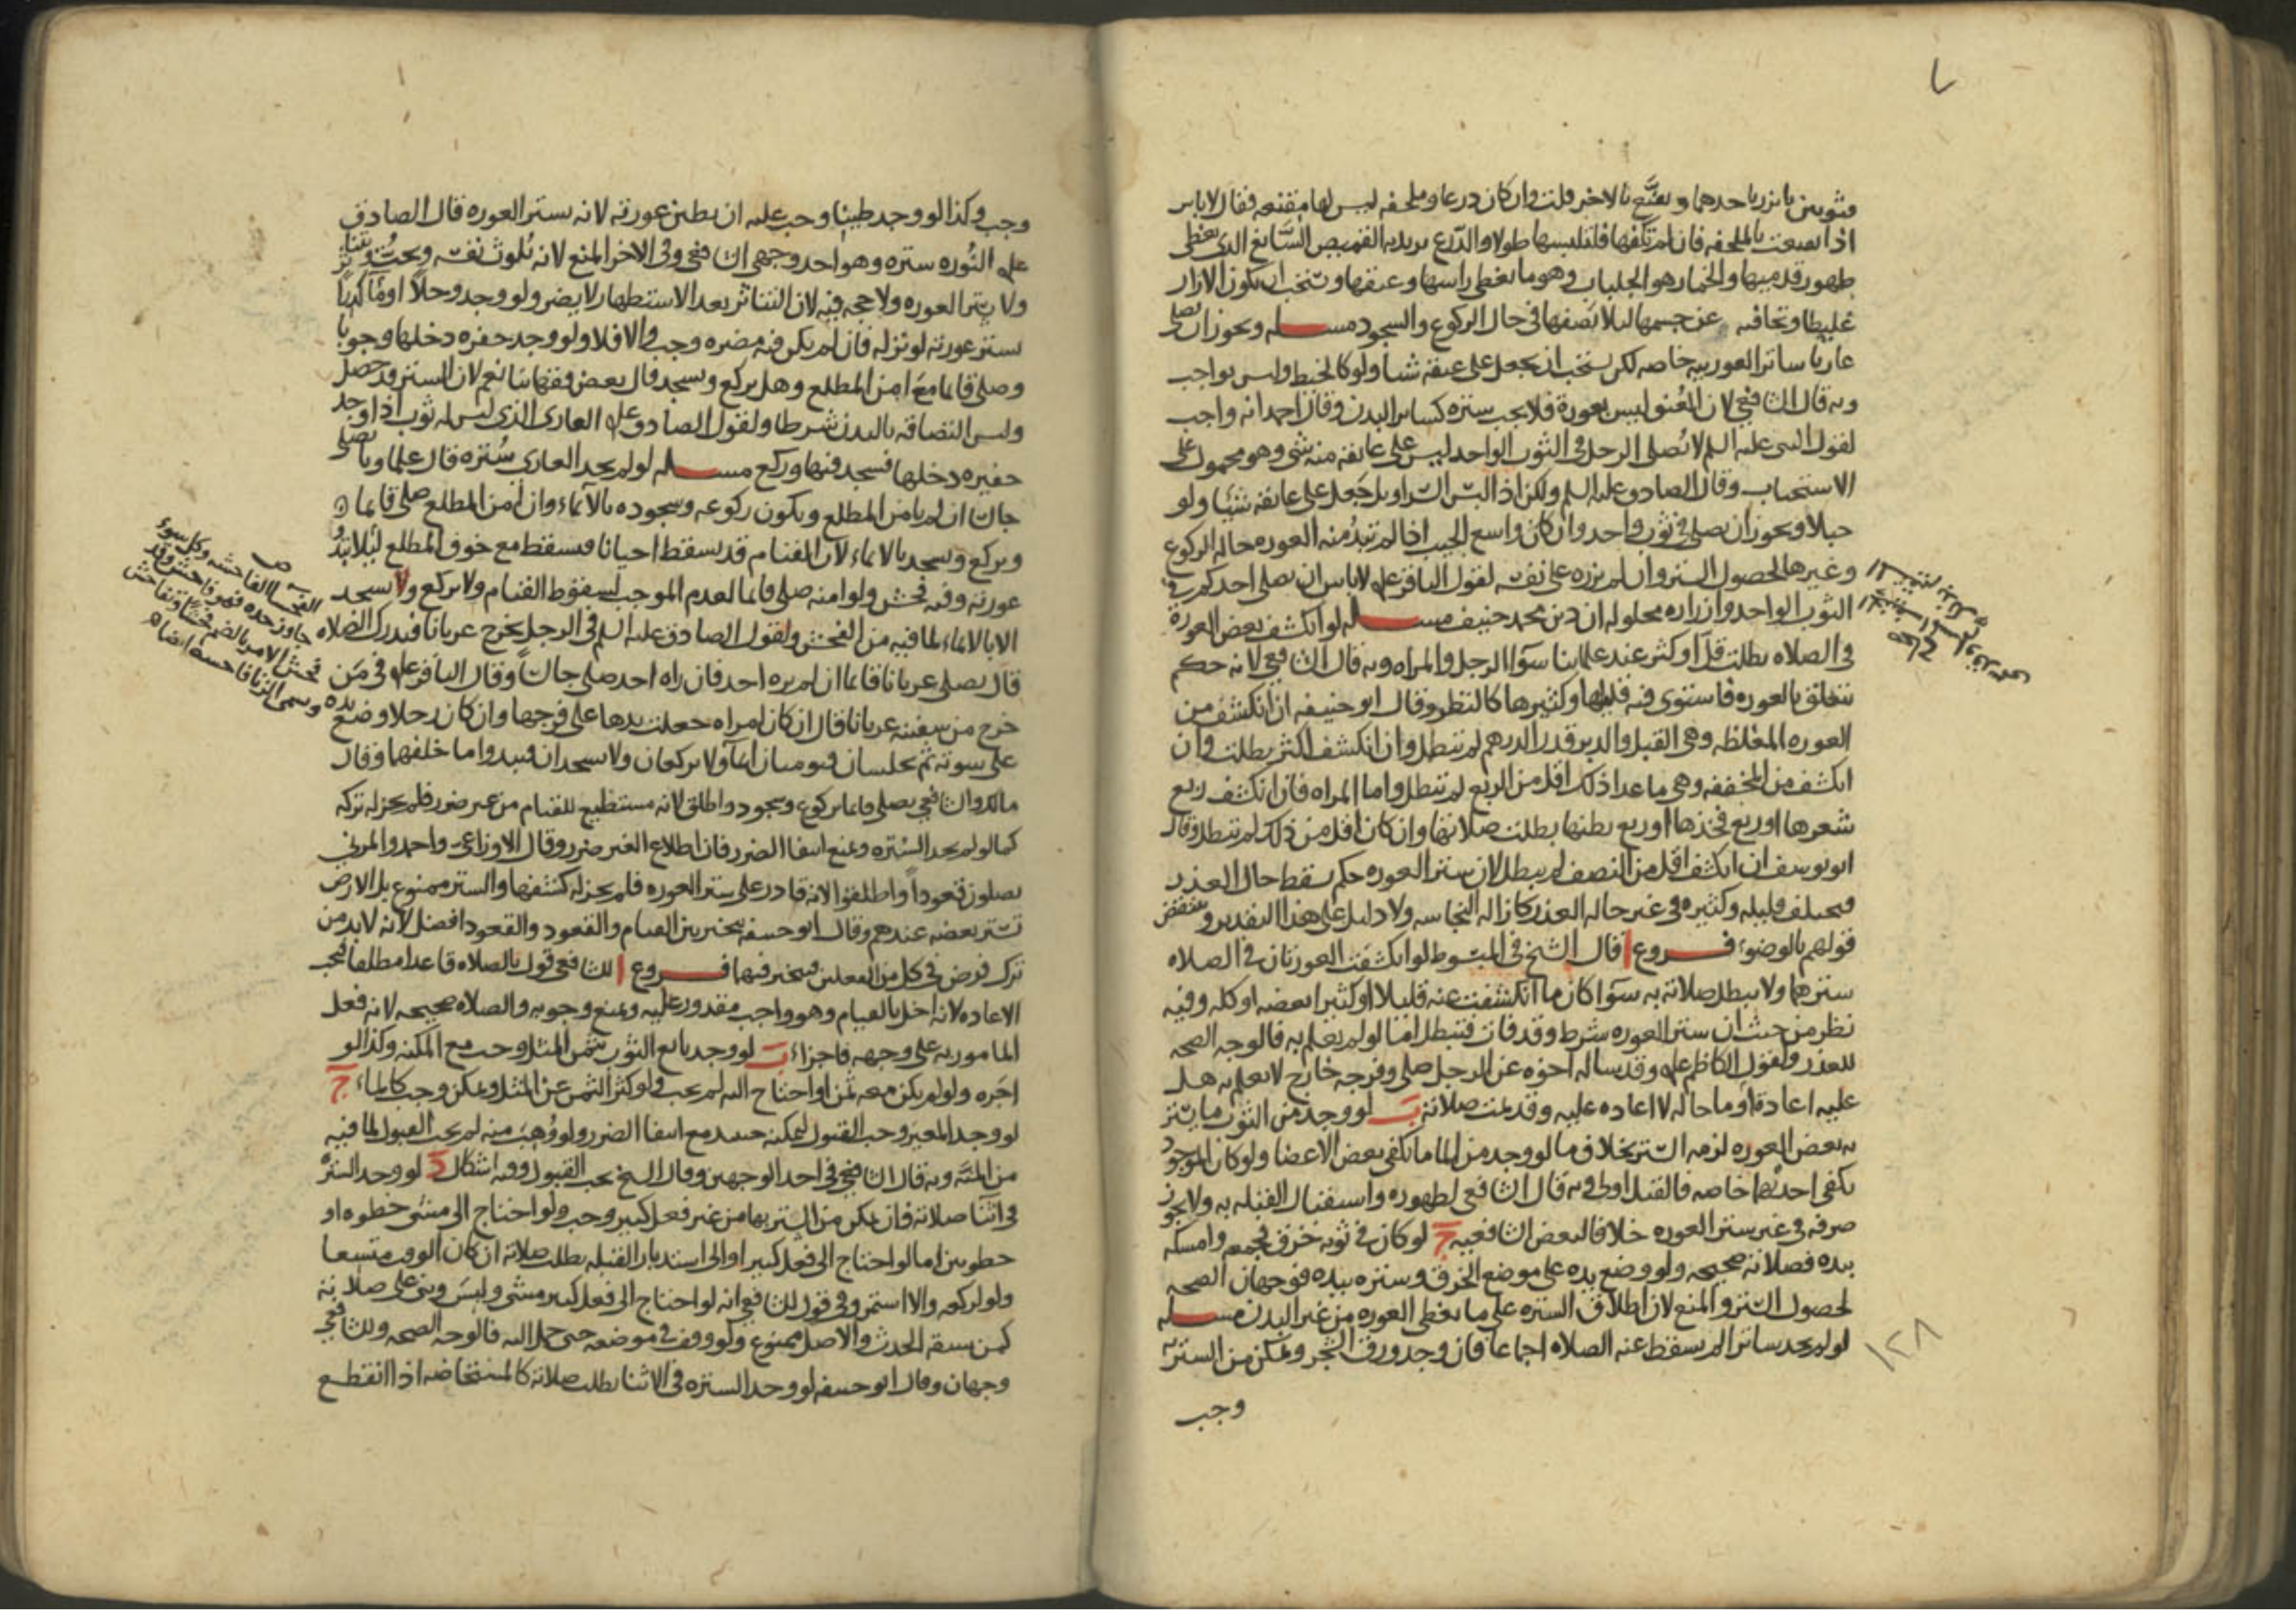 ٧
فثوبين ياتزر باحدهما ويقنّع بالاخر قلت وان كان درعا وملحفه ليس لها مقنعه فقال لا باس
اذا تقنعت بالملحفه فان لم تكفها فلتلبسها طولا والدّرع يريد به القميص السّابغ الذي يغطي
ظهور قدميها والخمار هو الجلباب وهو ما يغطي راسها وعنقها ويستحب ان يكون الازار
غليظا وتجافيه عن جسمها ليلا يصفها في حال الركوع والسجود مسـله ويجوز ان يصلي
عاريا ساترا لعورتيه خاصه لكن يستحب ان يجعل على عنقه شيا ولو كالخيط وليس بواجب
وبه قال الشافعي لان العُنق ليس بعورة فلا يجب ستره كساير البدن وقال احمد انه واجب
لقول النبي عليه السلم لا يُصلي الرجل في الثوب الواحد ليس على عاتقه منه شي وهو محمول على
الاستحباب وقال الصادق عليه السلم ولكن اذا لبس السّراويل جَعل على عاتقه شيئا ولو
حبلا ويجوز ان يصلي في ثوب واحد وان كان واسع الجيب اذا لم تبدُ منه العوره حاله الركوع
وغيرها لحصول الستر وان لم يزره على نفسه لقول الباقر علم لا باس ان يصلي احدكم في
الثوب الواحد وازراره محلوله ان دين محمد حنيف مسـله لو انكشف بعض العورة
في الصلاه بطلت قلّ او كثر عند علماينا سوآ الرجل والمراه وبه قال الشافعي لانه حكم
تتعلق بالعوره فاستوى فيه قليلها وكثيرها كالنظر وقال ابو حنيفه ان انكشف من
العوره المغلظه وهي القبل والدبر قدر الدرهم لم تبطل وان انكشف اكثر بطلت وان
انكشف من المخففه وهي ما عدا ذلك اقل من الربع لم تبطل واما المراه فان انكشف ربع
شعرها او ربع فخذها او ربع بطنها بطلت صلاتها وان كان اقل من ذلك لم تبطل وقال
ابو يوسف ان انكشف اقل من النصف لم يبطل لان ستر العوره حكم يسقط حال العذر
فيختلف قليله وكثيره في غير حاله العذر كازاله النجاسه ولا دليل على هذا التقدير وينتقض
قولهم بالوضوء فـروع ا قال الشيخ في المبسوط لو انكشفت العورتان في الصلاه
سترهما ولا يبطل صلاته به سوآ كان ما انكشفت عنه قليلا او كثيرا بعضه او كله وفيه
نظر من حيث ان ستر العوره شرط وقد فات فتبطل اما لو لم يعلم به فالوجه الصحه
للعذر ولقول الكاظم علم وقد ساله اخوه عن الرجل صلى وفرجه خارج لا يعلم به هل
عليه اعادة او ما حاله لا اعاده عليه وقد تمت صلاته ب لو وجد من الثوب ما يستر
به بعض العوره لزمه الستر بخلاف ما لو وجد من الما ما يكفي بعض الاعضا ولو كان الموجود
يكفي احدٮهما خاصه فالقبل اولى وبه قال الشافعي لظهوره واستقبال القبله به ولا يجوز
صرفه في غير ستر العوره خلافا لبعض الشافعيه ج لو كان في ثوبه خرق فجمعه وامسكه
بيده فصلاته صحيحه ولو وضع يده على موضع الخرق وستره بيده فوجهان الصحه
لحصول الستر والمنع لان اطلاق الستره على ما يغطي العوره من غير البدن مسـله
لو لم يجد ساترا لم يسقط عنه الصلاه اجماعا فان وجد ورق الشجر وتمكن من الستر به
وجب
١٢٨
وجب وكذا لو وجد طينا وجب عليه ان يطين عورته لانه يستر العوره قال الصادق
علم النُوره ستره وهو احد وجهي الشافعي وفي الاخر المنع لانه يُلوث نفسه ويحتُّ ويتناثر
ولا يستر العوره ولا حجه فيه لان التناثر بعد الاستظهار لا يضر ولو وجد وحلا او مآ كدرا
يستر عورته لو نزله فان لم يكن فيه مضره وجب والا فلا ولو وجد حفره دخلها وجوبا
وصلى قايما مع امن المطلع وهل يركع ويسجد قال بعض فقهائنا نعم لان الستر قد حصل
وليس التصاقه بالبدن شرطا ولقول الصادق علم العاري الذي ليس له ثوب اذا وجد
حفيره دخلها فسجد فيها وركع مسـله لو لم يجد العاري سُتره قال علماونا يصلي
جالسا ان لم يامن المطلع ويكون ركوعه وسجوده بالآيماء وان امن المطلع صلى قايما
ويركع ويسجد بالايماء لان القيام قد يسقط احيانا فيسقط مع خوف المطلع ليلا تبدُ
عورته وفيه فحش ولو امنه صلى قايما لعدم الموجب لسقوط القيام ولا يركع ولا يسجد
الا بالايماء لما فيه من الفحش ولقول الصادق عليه السلم في الرجل يخرج عريانا فيدرك الصلاه
قال يصلي عريانا قايما ان لم يره احد فان راه احد صلى جالساً وقال الباقر علم في مَن
خرج من سفينه عريانا قال ان كان امراه جعلت يدها على فرجها وان كان رجلا وضع يده
على سوته ثم يجلسان فيوميان ايمآ ولا يركعان ولا يسجدان فيبدوا ما خلفهما وقال
مالك والشافعي يصلي قايما بركوع وسجود واطلق لانه مستطيع للقيام من غير ضرر فلم يجز له تركه
كما لو لم يجد السُتره ويمنع انتفا الضرر فان اطلاع الغير ضرر وقال الاوزاعي واحمد والمزني
يصلون قعوداً واطلقوا لانه قادر على ستر العوره فلم يجز له كشفها والستر ممنوع بل الارض
تستر بعضه عندهم وقال ابو حنيفه يتخير بين القيام والقعود والقعود افضل لانه لا بد من
ترك فرض في كل من الفعلين فيتخير فيهما فـروع ا للشافعي قول بالصلاه قاعدا مطلقا فتجب
الاعاده لانه اخل بالقيام وهو واجب مقدور عليه ويمنع وجوبه والصلاه صحيحه لانه فعل
المامور به على وجهه فاجزاء ب لو وجد بايع الثوب بثمن المثل وجب مع المكنه وكذا لو
اجره ولو لم يكن معه ثمن او احتاج اليه لم يجب ولو كثر الثمن عن المثل وتمكن وجب كالماء ج
لو وجد المعير وجب القبول لتمكنه حينئذ مع انتفا الضرر ولو وُهبَ منه لم يجب القبول لما فيه
من المنّه وبه قال الشافعي في احد الوجهين وقال الشيخ يجب القبول وفيه اشكال د لو وجد الستره
في اثنآ صلاته فان تمكن من الستر بها من غير فعل كثير وجب ولو احتاج الى مشى خطوه او
خطوتين اما لو احتاج الى فعل كثير او الى استدبار القبله بطلت صلاته ان كان الوقت متسعا
ولو لركعه والا استمر وفي قول للشافعي انه لو احتاج الى فعل كثير مشى ولبسَ وبنى على صلاته
كمن سبقه الحدث والاصل ممنوع ولو وقف في موضعه حتى حمل اليه فالوجه الصحه وللشافعي
وجهان وقال ابو حنيفه لو وجد الستره في الاثنا بطلت صلاته كالمستحاضه اذا انقطع
الفحسا الفاحشه وكل سوء
جاوز حده فهو فاحش وقد
فحش الامر بالضم فحشا وتفاحش
وسمى الزنا فاحشه ايضا